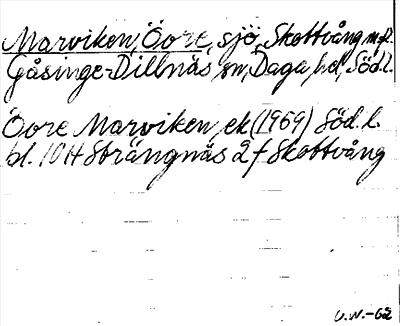 Marviken, Övre, sjö, Skottvång m.fl.
Gåsinge-Dillnäs sn, Daga hd, Söd.l.
Övre Marviken ek (1969) Söd.l.
bl. 10H Strängnäs 2f Skottvång
U.W.-62